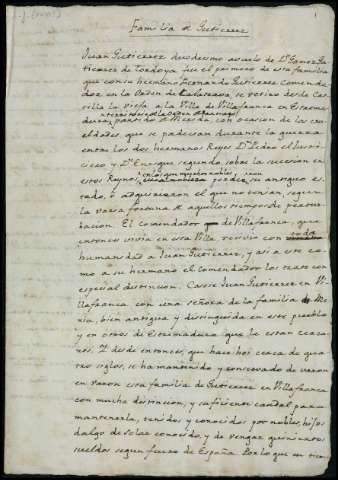 Familia de Gutierrez
1
Juan Gutierrez duodecimo avuelo de Dn. Gomez Gu-
tierrez de Tordoya fue el primero de esta familia
que con su hermano Fernando Gutierrez Comenda-
dor en la Orden de Calatrava, se retiró desde Cas-
tilla la vieja a la Villa de Villafranca en Estrema-
dura, partido de Merida, con ocasion de las cru-
eldades, que se padecian durante la guerra
entre los dos hermanos Reyes Dn. Pedro el Justi-
ciero y Dn. Enrique segundo, sobre la sucesion en
estos Reynos, en los que muchos nobles,
perdieron su antiguo es-
tado, o adquirieron el que no tenian, segun
la varia fortuna de aquellos tiempos de pertur-
bacion. El comendador de Villafranca, que
entonces vivia en esta Villa recivio con toda
humanidad a Juan Gutierrez, y asi a este co-
mo a su hermano el comendador los trató con
especial distincion. Casose Juan Gutierrez en Vi-
llafranca con una señora de la familia de Me-
xia, bien antigua y distinguida en este pueblo
y en otros de Estremadura que le estan cerca-
nos. Y desde entonces, que hace hoi cerca de qua-
tro siglos, se ha mantenido y conservado de varon
en varon esta familia de Gutierrez en Villafranca
con mucha distincion, y suficiente caudal para
mantenerla, tenidos y conocidos por nobles, hijos
dalgo de solar conocido, y de vengar quinientos
sueldos segun fuero de España. Por lo que en tien-